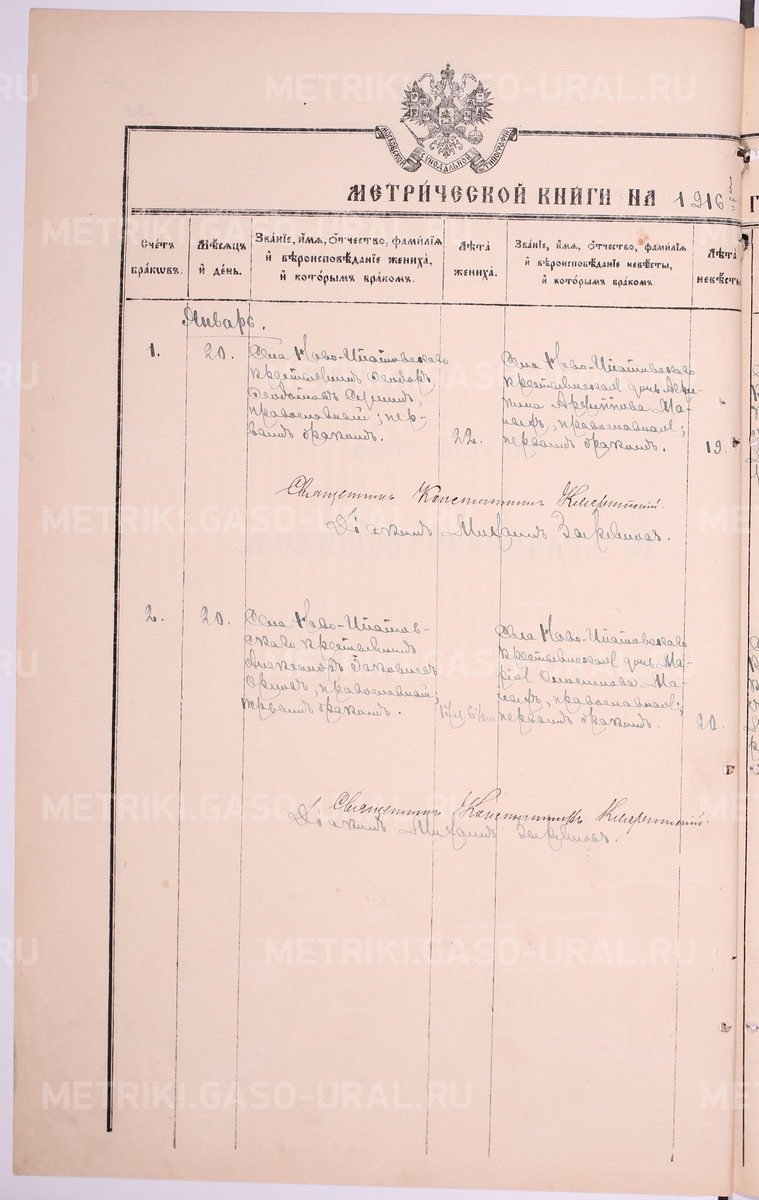 МОСКОВСКОЙ СѴНОДАЛЬНОЙ ТИПОГРАФІИ
МЕТРИ́ЧЕСКОЙ КНИ́ГИ НА 1916
Сче́тъ бра́ковъ.
Мѣ́сяцъ и де́нь.
Зва́нїе, и́мя, о́тчество, фами́лїя и вѣроисповѣ́данїе жениха̀, и кото́рымъ бра́комъ.
Лѣ́та жениха̀.
Зва́нїе, и́мя, о́тчество, фами́лїя и вѣроисповѣ́данїе невѣ́сты, и кото́рымъ бра́комъ.
Лѣ́та невѣ́сты
Январь.
1.
20.
Села Ново-Ипатовскаго
крестьянинъ Ѳеодоръ
Ѳеодотовъ
православный; пер-
вымъ бракомъ.
22.
Села Ново-Ипатовскаго
крестьянская дочь Агри-
пина
православная;
первымъ бракомъ.
19.
Священникъ Константинъ
Діаконъ Михаилъ
2.
20.
Села Ново-Ипатов-
скаго крестьянинъ
Александръ Яковлевъ
православный;
первымъ бракомъ.
17 л 6
Села Ново-Ипатовскаго
крестьянская дочь Ма-
рія
православная;
первымъ бракомъ.
20.
Священникъ Константинъ
Діаконъ Михаилъ
METRIKI.GASO-URAL.RU